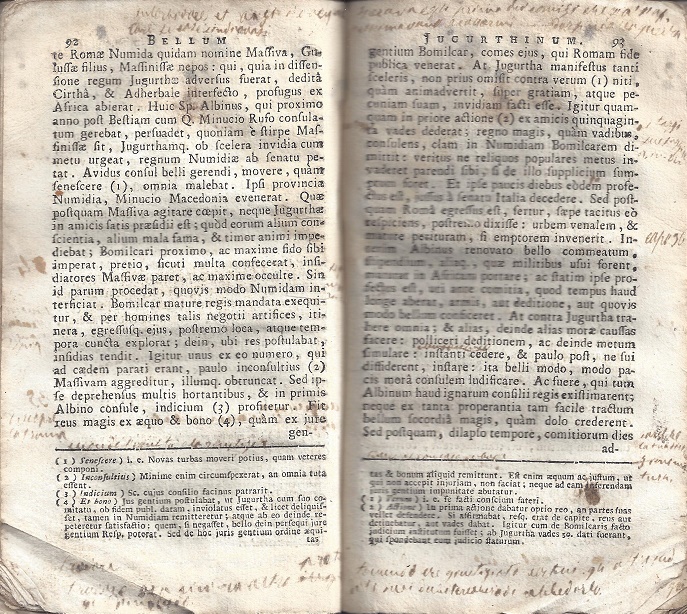 92 BELLUM
te Romæ Numida quidam nomine Massiva, Gu-
lussæ filius, Massinissæ nepos: qui, quia in dissen-
sione regum Jugurthæ adversus fuerat, deditâ
Cirthâ, & Adherbale interfecto, profugus ex
Africa abierat. Huic Sp. Albinus, qui proximo
anno post Bestiam cum Q. Minucio Rufo consula-
tum gerebat, persuadet, quoniam è stirpe Mas-
sinissæ sit, Jugurthamq. ob scelera invidia cum
metu urgeat, regnum Numidiæ ab senatu pe-
tat. Avidus consul belli gerendi, movere, quàm
senescere (1), omnia malebat. Ipsi provincia
Numidia, Minucio Macedonia evenerat. Quæ
postquam Massiva agitare cœpit, neque Jugurthæ
in amicis satis præsidii est; quòd eorum alium con-
scientia, alium mala fama, & timor animi impe-
diebat; Bomilcari proximo, ac maxime fido sibi
imperat, pretio, sicuti multa confecerat, insi-
diatores Massivæ paret, ac maxime occulte. Sin
id parum procedat, quovis modo Numidam in-
terficiat. Bomilcar mature regis mandata exequi-
tur, & per homines talis negotii artifices, iti-
nera, egressusq. ejus, postremo loca, atque tem-
pora cuncta explorat; dein, ubi res postulabat,
insidias tendit. Igitur unus ex eo numero, qui
ad cædem parati erant, paulo inconsultius (2)
Massivam aggreditur, illumq. obtruncat. Sed ip-
se deprehensus multis hortantibus, & in primis
Albino consule, indicium (3) profitetur. Fit
reus magis ex æquo & bono (4), quàm ex jure
gen-
(1) Senescere) i. e. Novas turbas moveri potius, quam veteres
componi.
(2) Inconsultius) Minime enim circumspexerat, an omnia tuta
essent.
(3) Indicium) Sc. cujus consilio facinus patrarit.
(4) Et bono) Jus gentium postulabat, ut Jugurtha cum suo co-
mitatu, ob fidem publ. datam, inviolatus esset, & licet deliquis-
set, tamen in Numidiam remitteretur; atque ab eo deinde re-
peteretur satisfactio; quem, si negasset, bello dein persequi jure
gentium Resp. poterat. Sed de hoc juris gentium ordine æqui-
tas
JUGURTHINUM. 93
gentium Bomilcar, comes ejus, qui Romam fide
publica venerat. At Jugurtha manifestus tanti
sceleris, non prius omisit contra verum (1) niti,
quàm animadvertit, super gratiam, atque pe-
coniam suam, invidiam facti esse. Igitur quam-
quam in priore actione (2) ex amicis quinquagin-
ta vades dederat; regno magis, quàm vadibus
consulens, clam in Numidiam Bomilcarem di-
mittit: veritus ne reliquos populares metus in-
vaderet parendi sibi, si de illo supplicium sum-
ptum foret. Et ipse paucis diebus eòdem profe-
ctus est, jussus à senatu Italia decedere. Sed post-
quam Româ egressus est, fertur, sæpe tacitus eò
respiciens, postremo dixisse: urbem venalem, &
mature perituram, si emptorem invenerit. In-
terim Albinus renovato bello commeatum,
quæ militibus usui forent,
Africam portare; ac statim ipse pro-
fectus est, uti ante comitia, quod tempus haud
longe aberat, armis, aut deditione, aut quovis
modo bellum conficeret. At contra Jugurtha tra-
here omnia; & alias, deinde alias moræ caussas
facere: polliceri deditionem, ac deinde metum
simulare: instanti cedere, & paulo post, ne sui
diffiderent, instare: ita belli modo, modo pa-
cis morâ consulem ludificare. Ac fuere, qui tum
Albinum haud ignarum consilii regis existimarent;
neque ex tanta properantia tam facile tractum
bellum socordiâ magis, quàm dolo crederent.
Sed postquam, dilapso tempore, comitiorum dies
ad-
tas & bonum aliquid remittunt. Est enim æquum ac justum, ut
qui non accepit injuriam, non faciat; neque ad eam inferendam
juris gentium impunitate abutatur.
(1) Verum) i. e. se facti conscium fateri.
(2) Actione) In prima actione dabatur optio reo, an partes suas
vellet defendere. Si affirmabat, resq. erat de capite, reus aut
detinebatur, aut vades dabat. Igitur cum de Bomilcaris facto
judicium institutum fuisset; ab Jugurtha vades 50. dati fuerant,
qui spondebant eum judicio staturum.